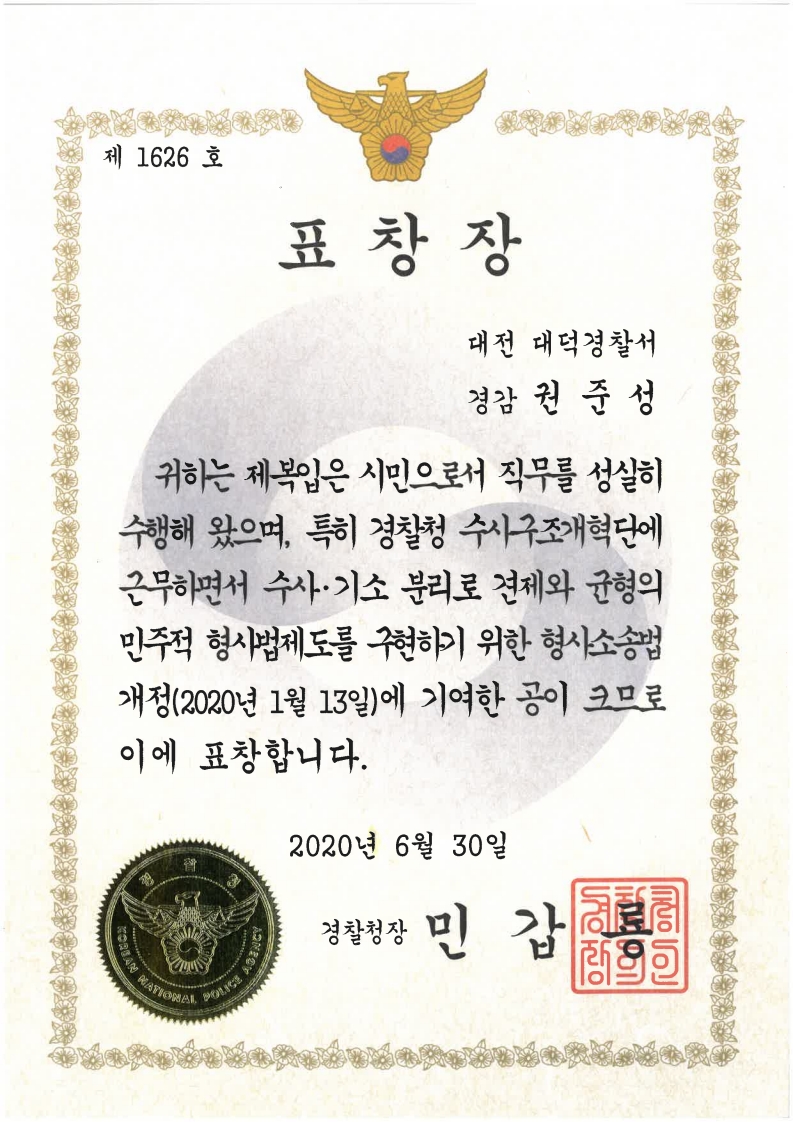 제 1626 호
표 창 장
대전 대덕경찰서
경감 권 준 성
귀하는 제복입은 시민으로서 직무를 성실히
수행해 왔으며, 특히 경찰청 수사구조개혁단에
근무하면서 수사·기소 분리로 견제와 균형의
민주적 형사법제도를 구현하기 위한 형사소송법
개정(2020년 1월 13일)에 기여한 공이 크므로
이에 표창합니다.
2020년 6월 30일
경찰청장 민 갑 룡
경찰청
KOREAN NATIONAL POLICE AGENCY
경찰청장의인